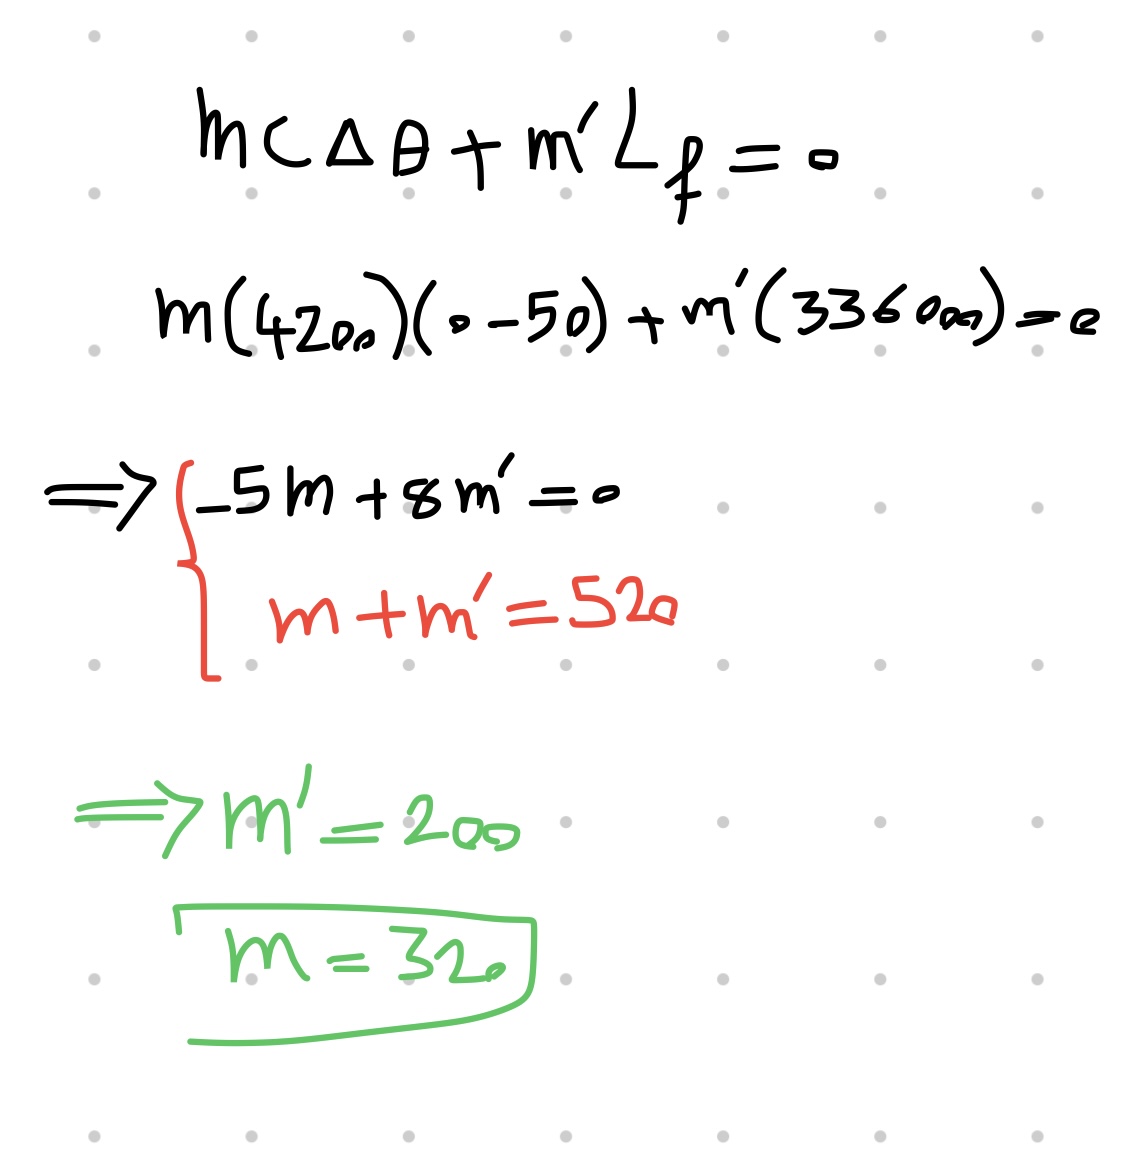 mcΔθ + m′L_f = 0
m(4200)(0 − 50) + m′(336000) = 0
⇒ { −5m + 8m′ = 0
m + m′ = 520
⇒ m′ = 200
m = 320